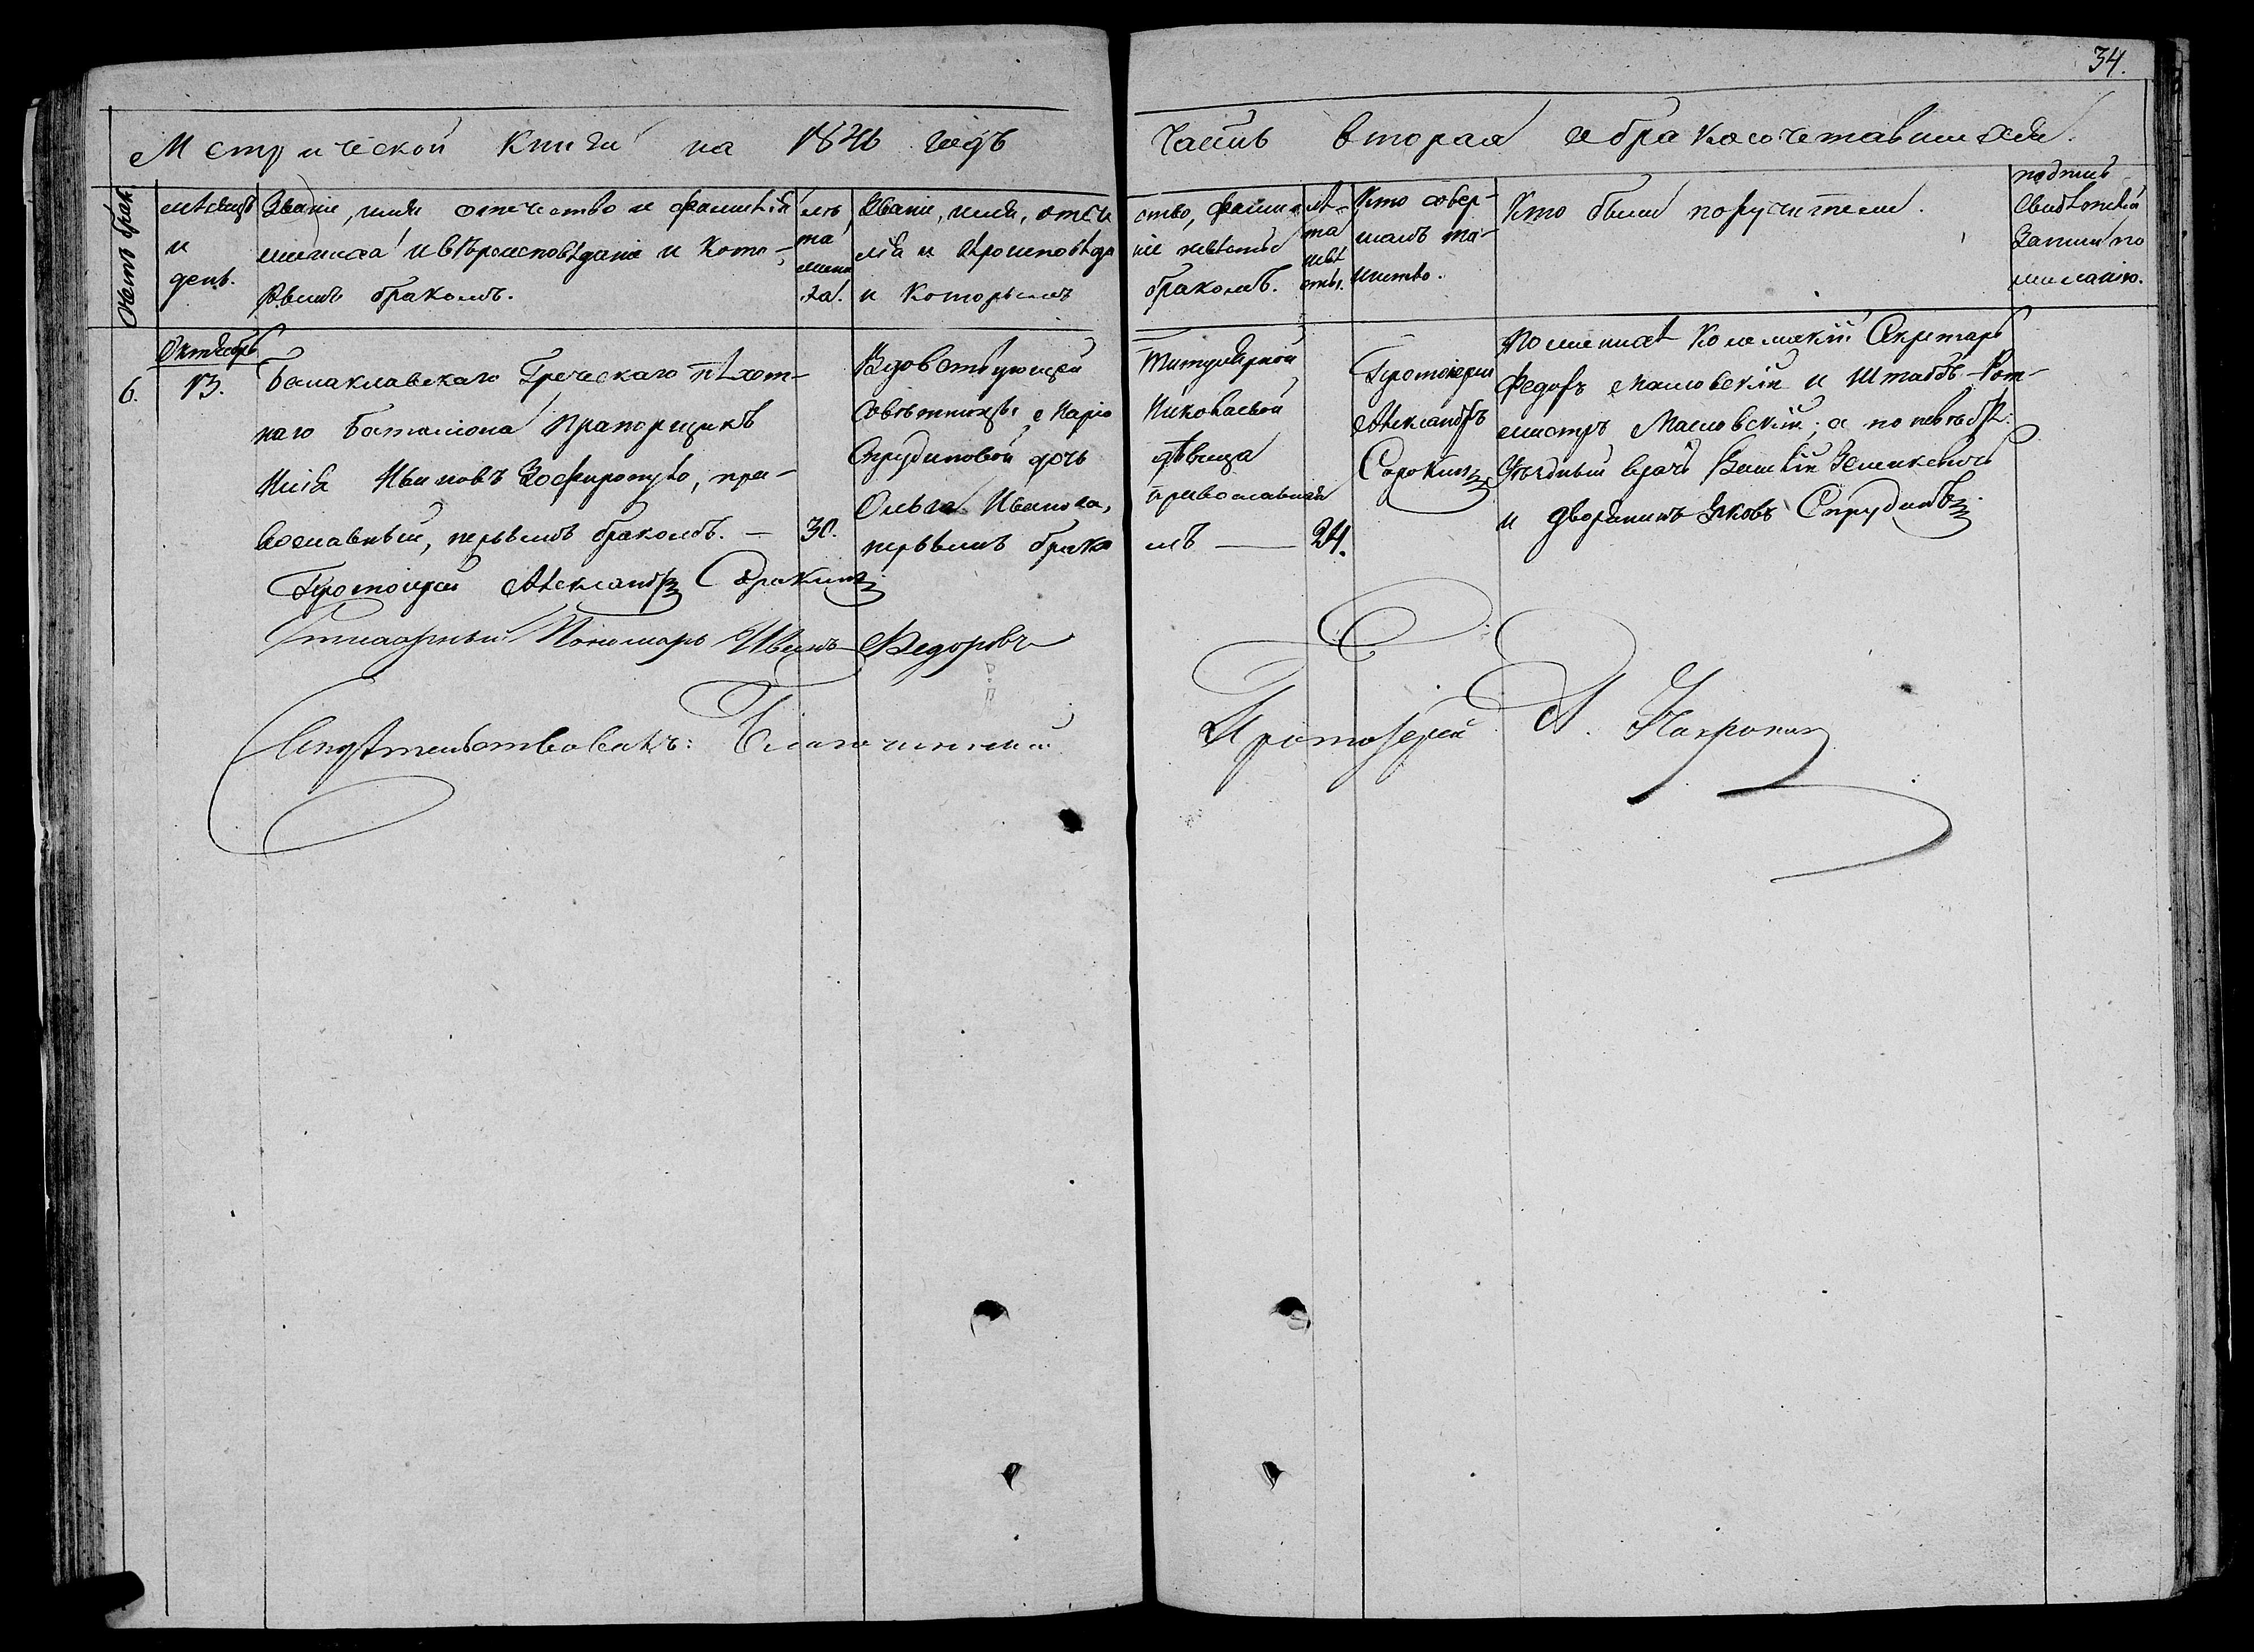 34.
Метрической Книги на 1846 годъ
Часть вторая о бракосочетавшихся.
Счетъ брак.
мѣсяцъ
и
день.
Званіе, имя отчество и фамилія
жениха и вѣроисповѣданіе и кото-
рымъ бракомъ.
лѣ
та
жени
ха.
Званіе, имя, отче
лія и вѣроисповѣда
и которымъ
ство, фами
ніе невѣсты
бракомъ.
лѣ-
та
невѣ
сты.
Кто совер-
шалъ та-
инство.
Кто были поручители.
подпись
свидѣтелей
записи по
желанію.
Октябрь
6.
13.
Балаклавскаго Греческаго пѣхот-
наго Баталіона Прапорщикъ
Илія Ивановъ Зафиропуло, пра-
вославный, первымъ бракомъ. —
30.
Вдовствующей
Совѣтницы Марію
Спрудиновой дочь
Ольга Иванова,
первымъ брако
Титулярной
Николаевой
дѣвица
православная
мъ —
24.
Протоіерей
Александръ
Сорокинъ
По женихѣ Колежскій Секретарь
Федоръ Масловскій и Штабъ-Рот-
мистръ Масловскій; а по невѣстѣ:
Уѣздный врачъ Василій
и дворянинъ Яковъ Спрудинъ
Протоіерей Александръ Сорокинъ
Пономарь Иванъ Федоровъ
Свидѣтельствовалъ: Благочинный
Протоіерей А.